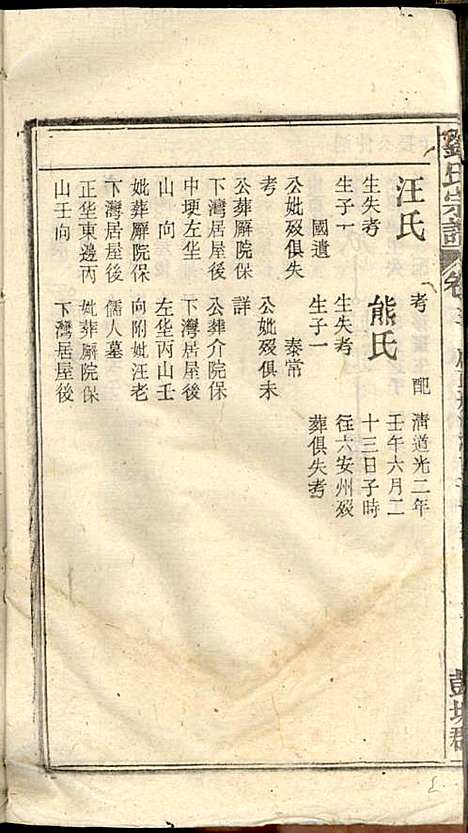 劉氏宗譜
卷
彭城郡
汪氏
生失考
生子一
國遺
公妣歿俱失
考
公葬廨院保
下灣居屋後
中埂左坒
山　向
妣葬廨院保
下灣居屋後
正坒東邊丙
山壬向
考　配
熊氏
生失考
生子一
泰常
公妣歿俱未
詳
公葬介院保
下灣居屋後
左坒丙山壬
向附妣汪老
儒人墓
妣葬廨院保
下灣居屋後
清道光二年
壬午六月二
十三日子時
往六安州歿
葬俱失考